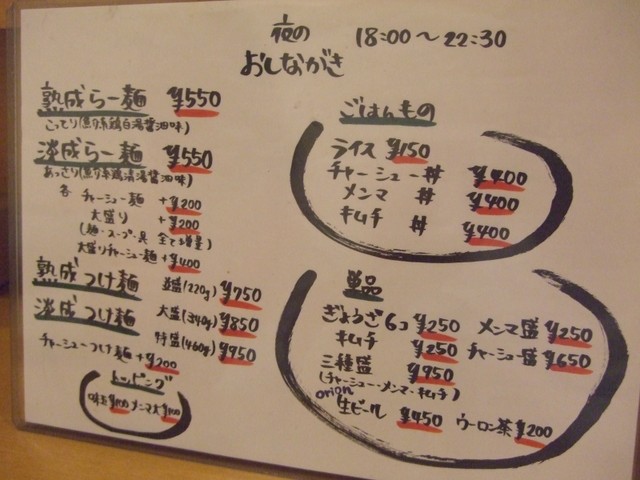 夜の 18:00〜22:30
おしながき
熟成らー麺 ¥550
こってり(魚介系鶏白湯醤油味)
淡成らー麺 ¥550
あっさり(魚介系鶏清湯醤油味)
各 チャーシュー麺 +¥200
大盛り +¥200
(麺・スープ・具 全て増量)
大盛りチャーシュー麺 +¥400
熟成つけ麺 並盛(220g) ¥750
淡成つけ麺 大盛(340g) ¥850
特盛(460g) ¥950
チャーシューつけ麺 +¥200
トッピング
味玉¥100 メンマ大¥100
ごはんもの
ライス ¥150
チャーシュー丼 ¥400
メンマ 丼 ¥400
キムチ 丼 ¥400
単品
ぎょうざ6コ ¥250 メンマ盛 ¥250
キムチ ¥250 チャーシュー盛 ¥650
三種盛 ¥950
(チャーシュー・メンマ・キムチ)
orion
生ビール ¥450 ウーロン茶 ¥200